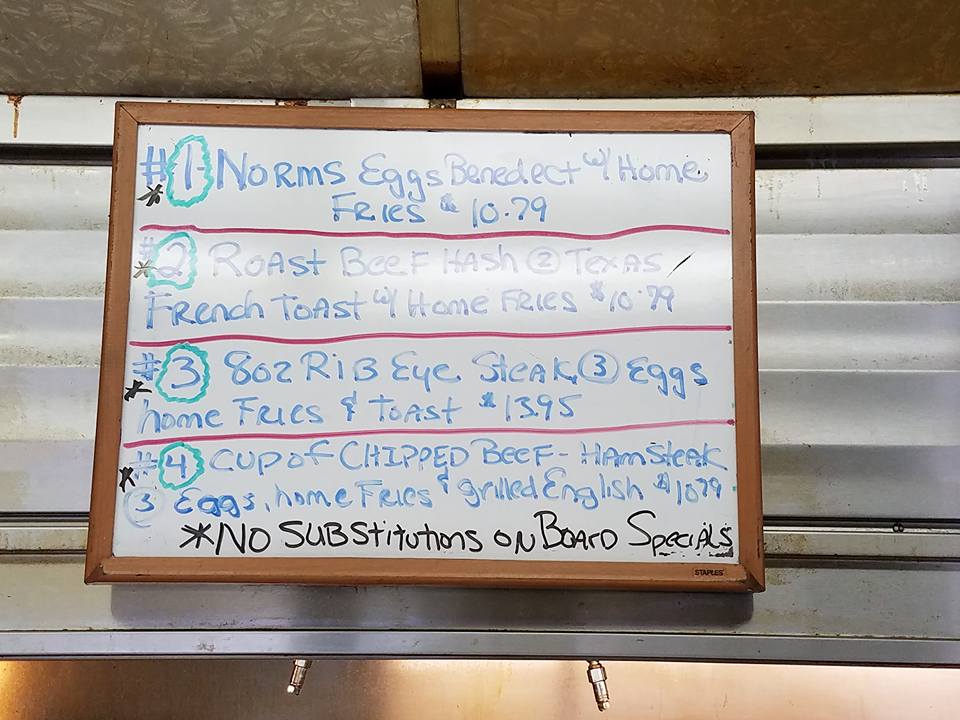 #1 Norms Eggs Benedect w/ Home
Fries $ 10.79
#2 Roast Beef Hash (2) Texas
French Toast w/ Home Fries $10.79
#3 8oz Rib Eye Steak, (3) Eggs
home Fries & Toast $13.95
#4 Cup of CHIPPED Beef - Ham Steak
(3) Eggs, home Fries & grilled English $10.79
*No SUBStitutions on Board Specials
STAPLES